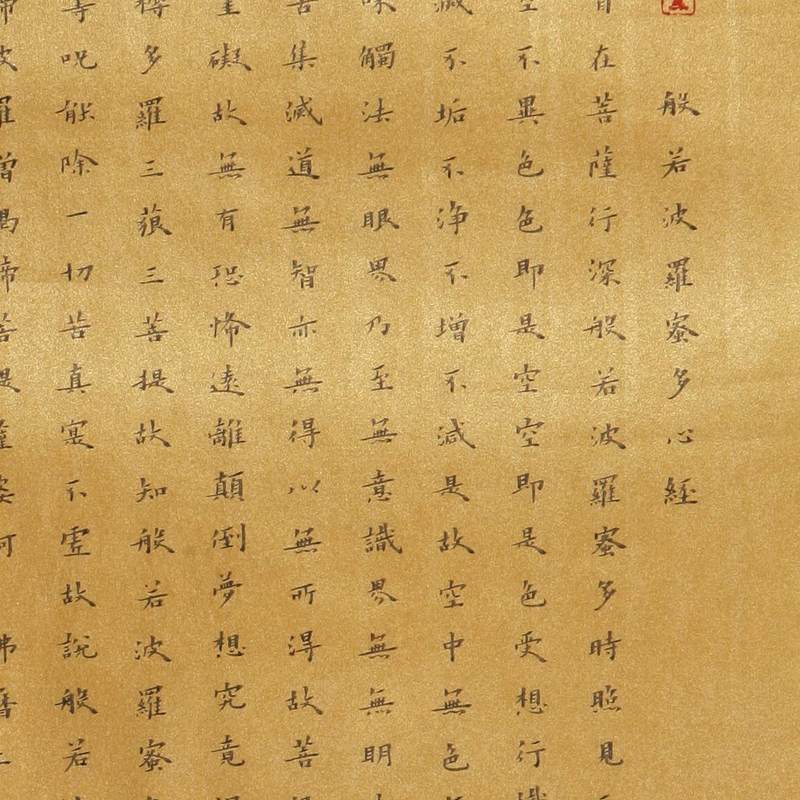 般若波羅蜜多心經
自在菩薩行深般若波羅蜜多時照見
空不異色色即是空空即是色受想行識
滅不垢不淨不增不減是故空中無色
味觸法無眼界乃至無意識界無無明
苦集滅道無智亦無得以無所得故菩
罣礙故無有恐怖遠離顛倒夢想究竟
耨多羅三藐三菩提故知般若波羅蜜
等呪能除一切苦真實不虛故說般若
帝波羅僧揭帝菩提薩婆訶